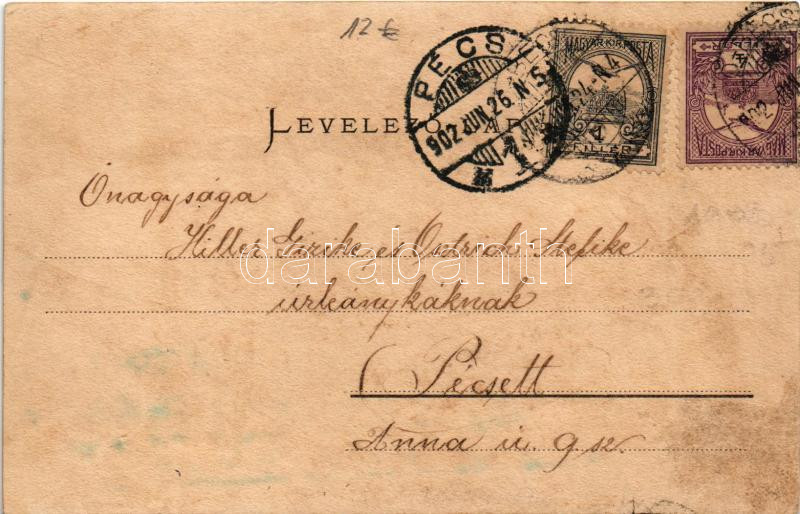 12 €
PÉCS
902 JUN. 26. N 5
MAGY. KIR. POSTA
1
FILLÉR
MAGY. KIR. POSTA
LEVELEZŐ LAP
Önagysága
Hiller Gizike és Ostrich Stefike
úrleánykáknak
Pécsett
Anna u. 9 sz.
darabanth